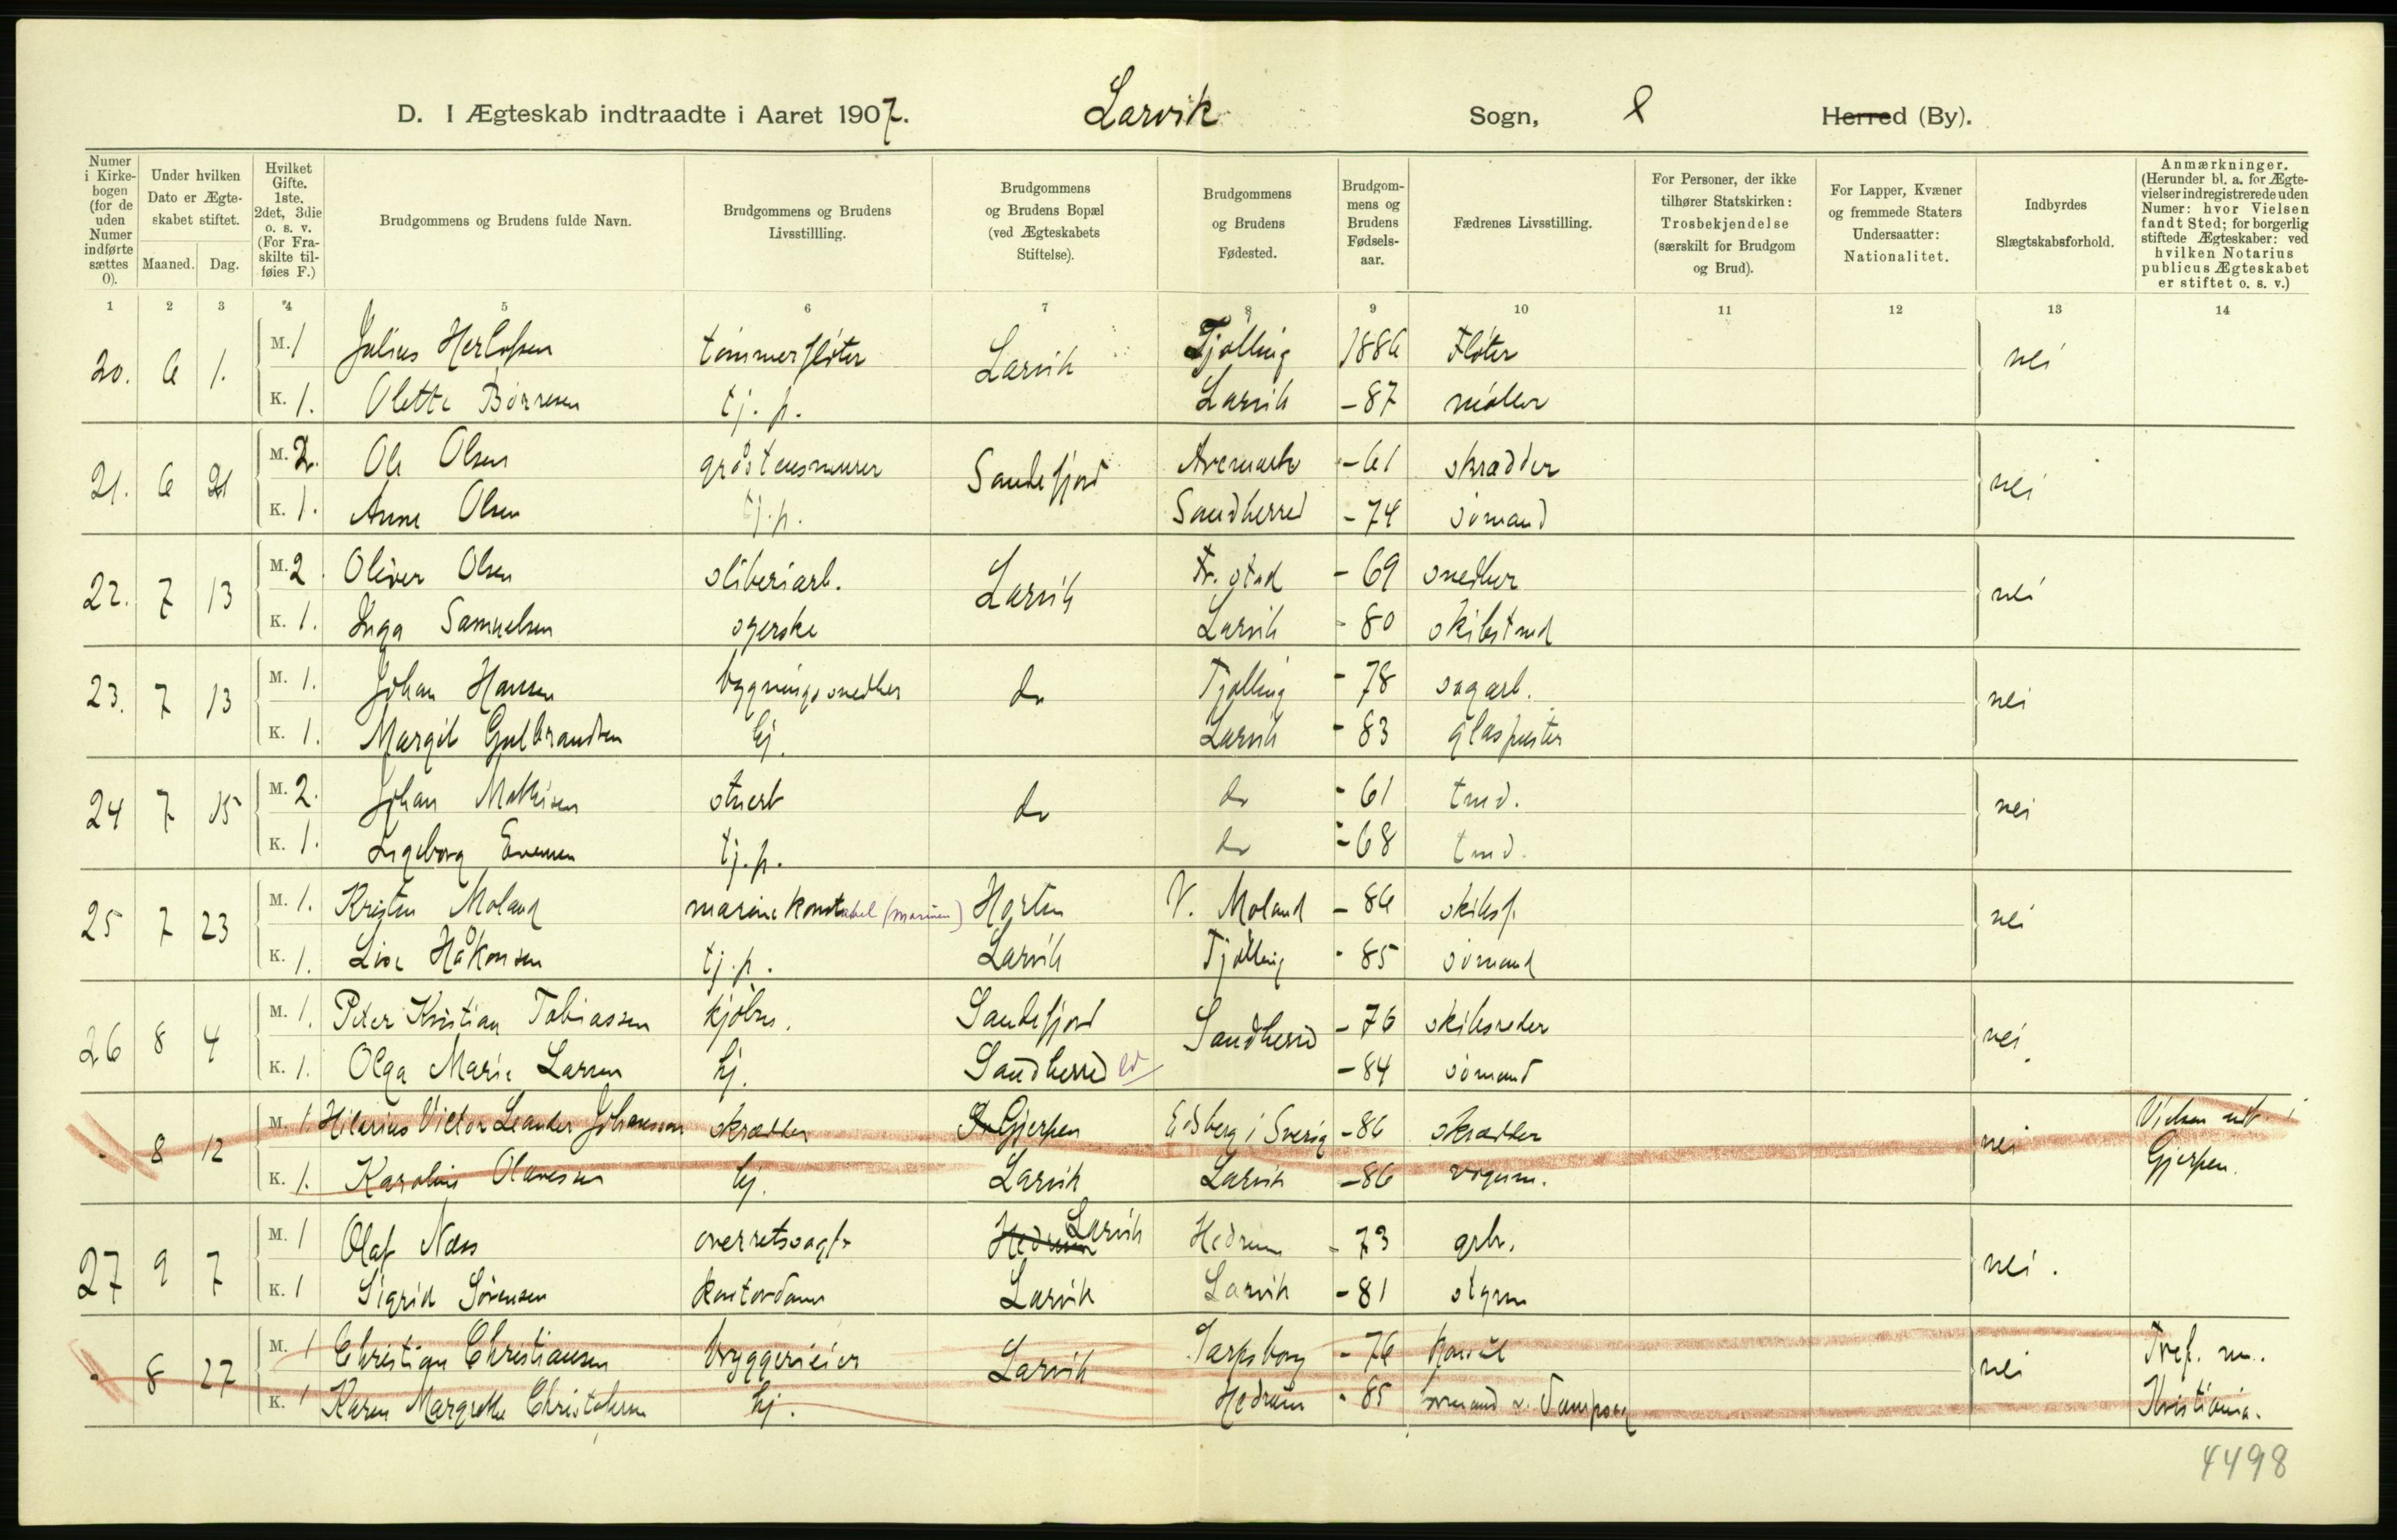 D. I Ægteskab indtraadte i Aaret 1907. Larvik Sogn, Herred (By).
Numer i Kirkebogen (for de uden Numer indførte sættes 0).
Under hvilken Dato er Ægteskabet stiftet.
Maaned. Dag.
Hvilket Gifte. 1ste. 2det, 3die o. s. v. (For Fraskilte tilføies F.)
Brudgommens og Brudens fulde Navn.
Brudgommens og Brudens Livsstillling.
Brudgommens og Brudens Bopæl (ved Ægteskabets Stiftelse).
Brudgommens og Brudens Fødested.
Brudgommens og Brudens Fødselsaar.
Fædrenes Livsstilling.
For Personer, der ikke tilhører Statskirken: Trosbekjendelse (særskilt for Brudgom og Brud).
For Lapper, Kvæner og fremmede Staters Undersaatter: Nationalitet.
Indbyrdes Slægtskabsforhold.
Anmærkninger. (Herunder bl. a. for Ægtevielser indregistrerede uden Numer: hvor Vielsen fandt Sted; for borgerlig stiftede Ægteskaber: ved hvilken Notarius publicus Ægteskabet er stiftet o. s. v.)
1 2 3 4 5 6 7 8 9 10 11 12 13 14
20. 6 1. M. 1 Julius Herlofsen tømmerfløter Larvik Tjølling 1886 Fløter nei
K. 1. Olette Børresen tj. p. Larvik -87 møller
21. 6 21 M. 2. Ole Olsen gråstensmurer Sandefjord Aremark -61 skrædder nei
K. 1. Anne Olsen tj. p. Sandherred -74 sømand
22. 7 13 M. 2. Oliver Olsen sliberiarb. Larvik Fr. stad -69 snedker nei
K. 1. Inga Samuelsen syerske Larvik -80 skibstmd
23. 7 13 M. 1. Johan Hansen bygningssnedker do Tjølling -78 sagarb. nei
K. 1. Margit Gulbrandsen hj. Larvik -83 glaspuster
24 7 15 M. 2. Johan Mathisen stuert do do -61 tmd. nei
K. 1. Ingeborg Evensen tj. p. do -68 tmd.
25 7 23 M. 1. Kristen Moland marinekonstabel (marinen) Horten V. Moland -86 skibsf. nei
K. 1. Lise Håkonsen tj. p. Larvik Tjølling -85 sømand
26 8 4 M. 1. Peter Kristian Tobiassen kjøbm. Sandefjord Sandherred -76 skibsreder nei
K. 1. Olga Marie Larsen hj. Sandherred -84 sømand
- 8 12 M. 1. Hilarius Victor Leander Johansson skrædder Gjerpen Edsberg i Sverig -86 skrædder nei Vielsen udf i
K. 1. Karoline Olavesen hj. Larvik Larvik -86 vognm. Gjerpen.
27 9 7 M. 1 Olaf Næss overretssagf. Hedrum Larvik Hedrum -73 grbr. nei.
K. 1 Sigrid Sørensen kontordame Larvik Larvik -81 styrm
- 8 27 M. 1 Christian Christiansen bryggerieier Larvik Sarpsborg -76 nei Tref. m.
K. 1 Karen Margrethe Christophersen hj. Hedrum -85 Kristiania.
4498